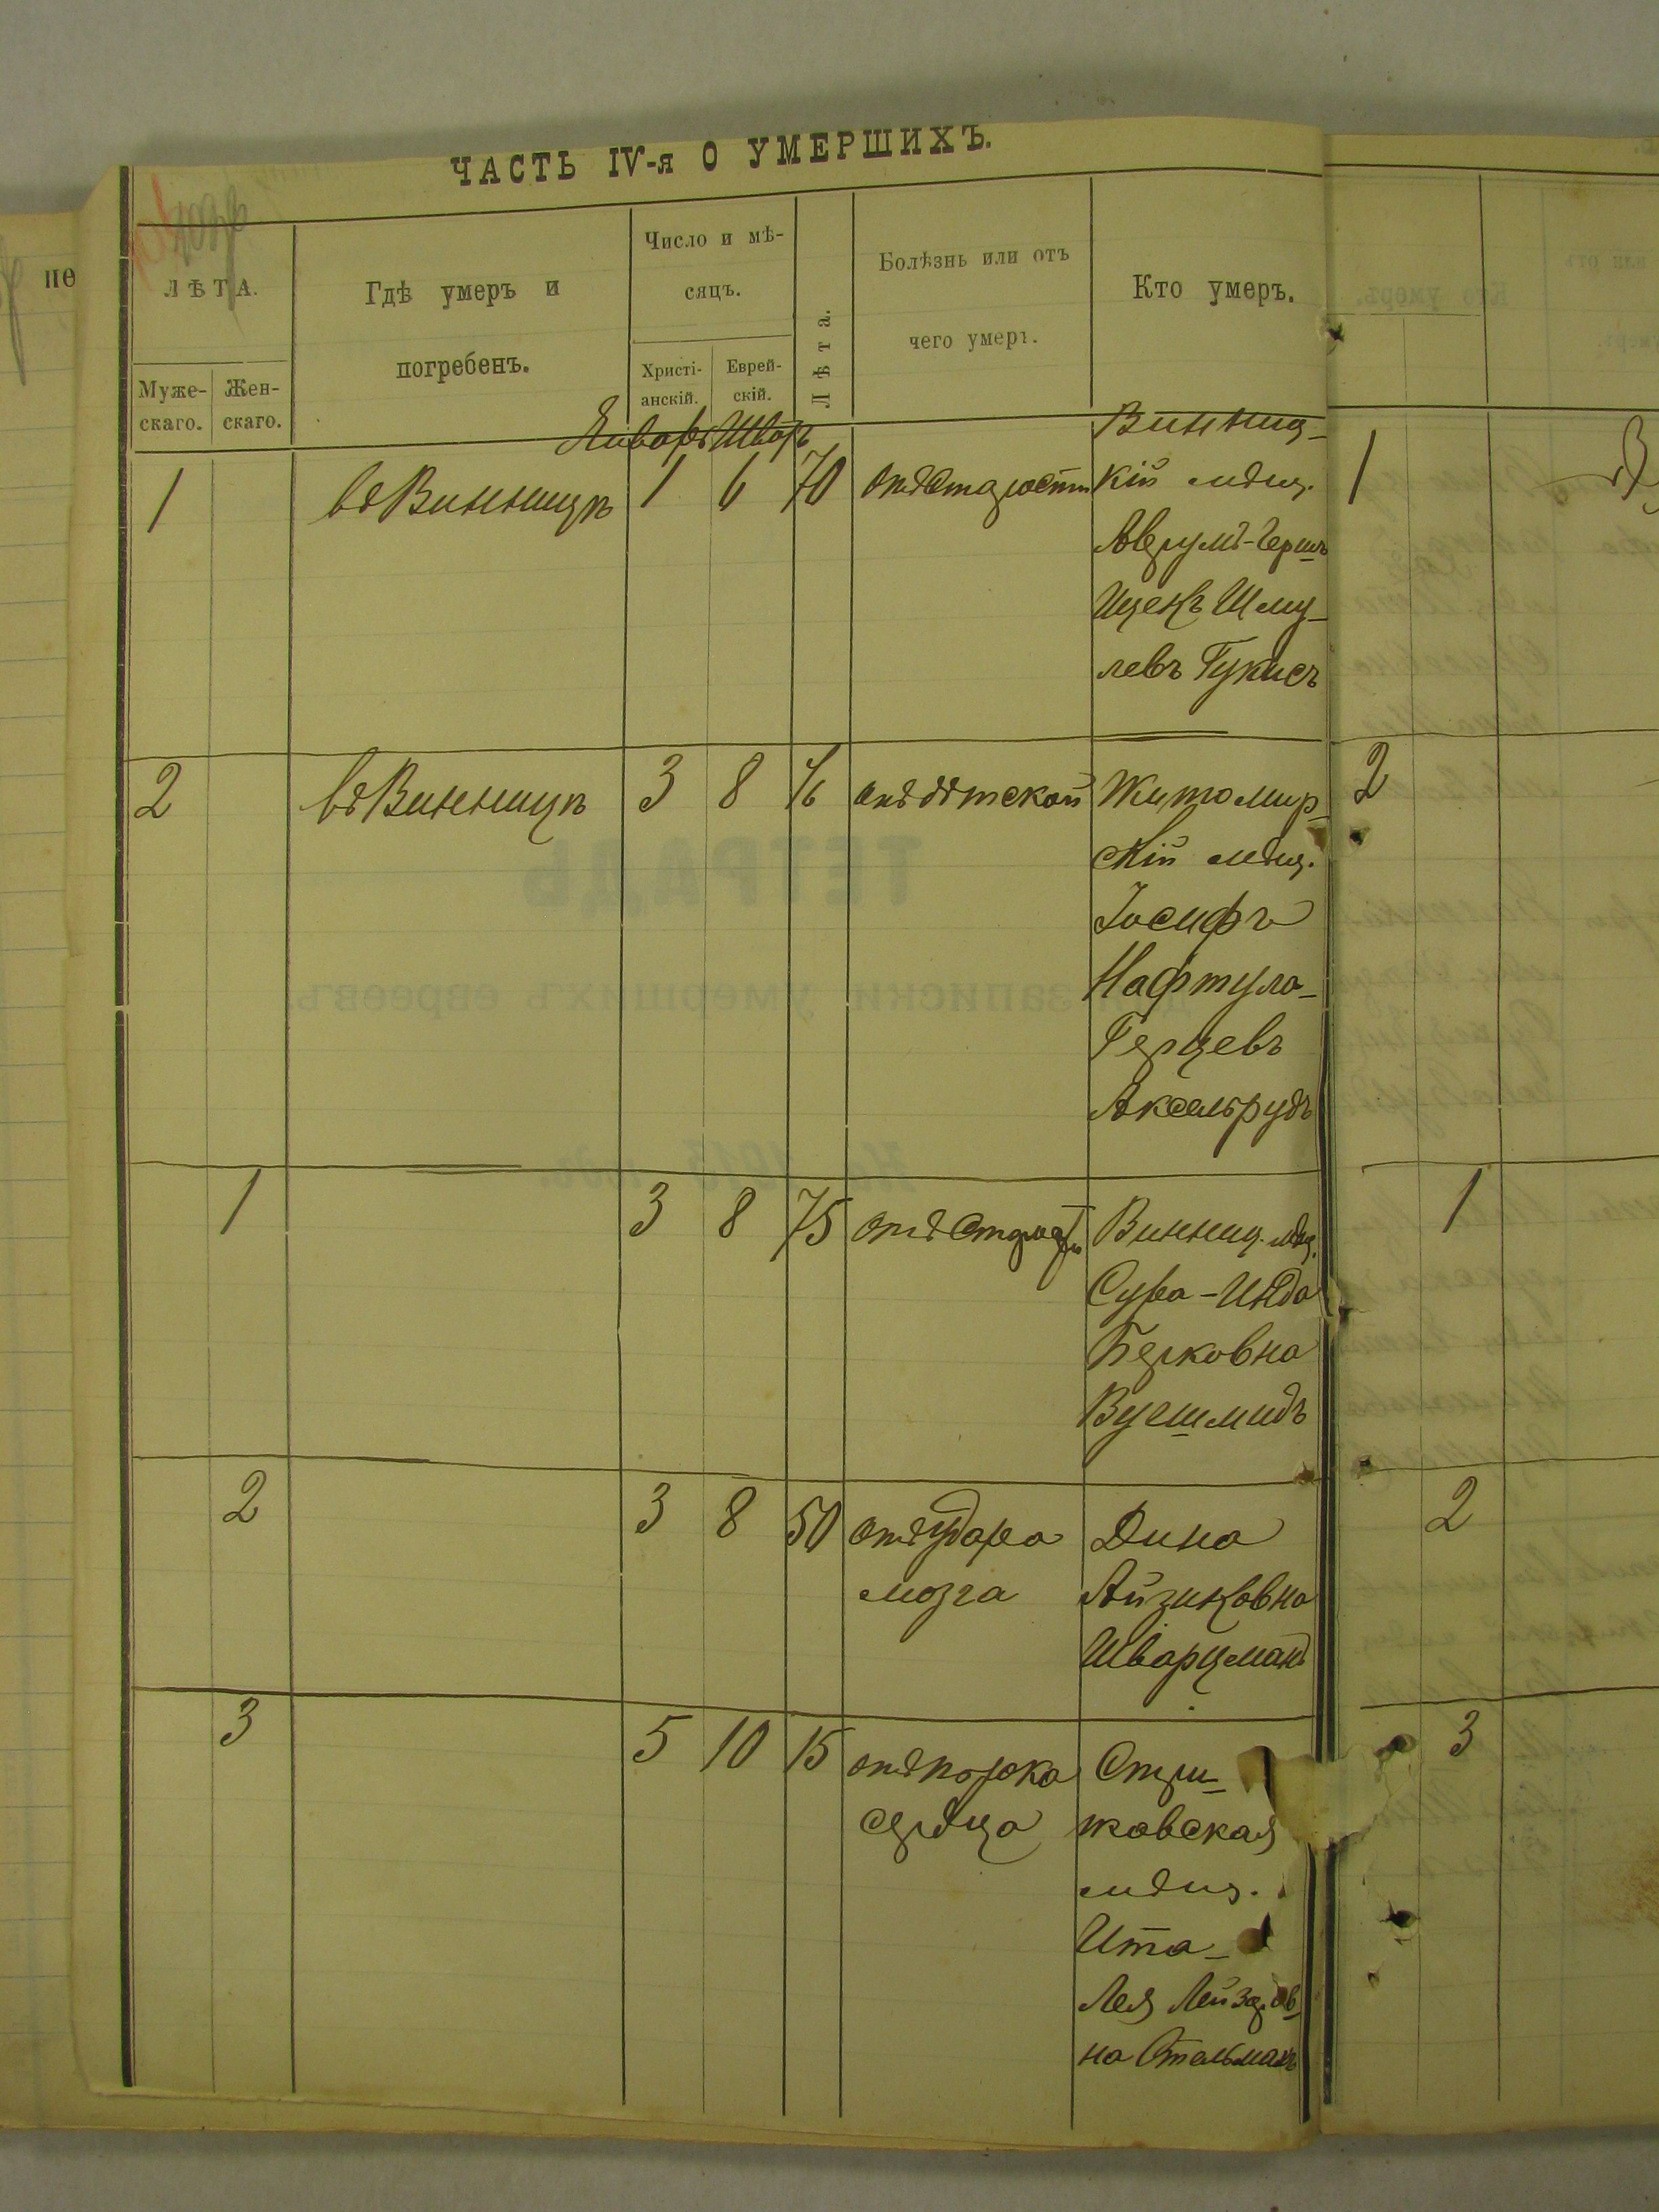 ЧАСТЬ IV-я О УМЕРШИХЪ.
ЛѢТА.
Муже-
скаго.
Жен-
скаго.
Гдѣ умеръ и
погребенъ.
Число и мѣ-
сяцъ.
Христі-
анскій.
Еврей-
скій.
Лѣта.
Болѣзнь или отъ
чего умеръ.
Кто умеръ.
Январь Шватъ
1 въ Винницѣ 1 6 70 отъ старости
Винниц-
кій мѣщ.
Аврумъ-Герш-
Ицекъ Шму-
левъ Гукисъ
2 въ Винницѣ 3 8 отъ дѣтской
Житомир-
скій мѣщ.
Іосифъ
Нафтула-
Герцевъ
Аксельрудъ
1 3 8 75 отъ старости
Винниц. мѣщ.
Сура-Инда
Берковна
Вугшмидъ
2 3 8 50 отъ удара
мозга
Дина
Айзиковна
Шварцманъ
3 5 10 15 отъ порока
сердца
Стри-
жовская
мѣщ.
Ита-
Лея Лейзеров-
на Стельмахъ
1
2
1
2
3